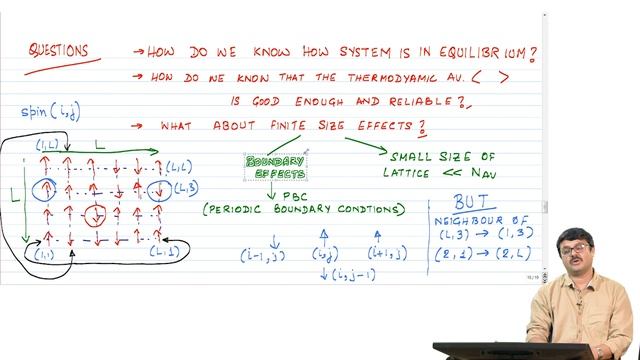 QUESTIONS
→ HOW DO WE KNOW HOW SYSTEM IS IN EQUILIBRIUM?
→ HOW DO WE KNOW THAT THE THERMODYAMIC AV. < >
IS GOOD ENOUGH AND RELIABLE?,
→ WHAT ABOUT FINITE SIZE EFFECTS?
spin(i,j)
(1,L)
L
(L,L)
(L,3)
L
(1,1)
(L,1)
BOUNDARY
EFFECTS
PBC
(PERIODIC BOUNDARY CONDTIONS)
SMALL SIZE OF
LATTICE << NAV
(i-1,j)
(i,j)
(i+1,j)
(i,j-1)
BUT
NEIGHBOUR OF
(L,3) → (1,3)
(2,1) → (2,L)